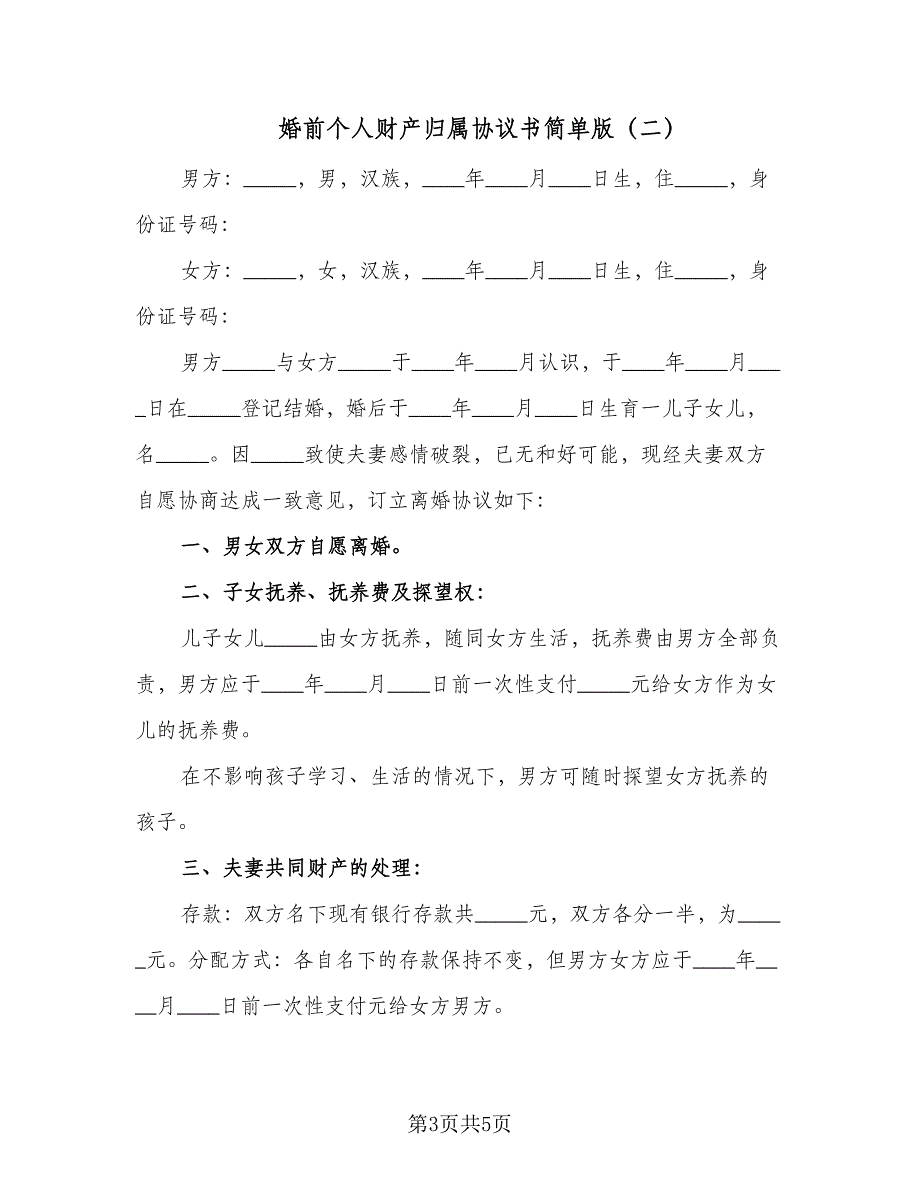 婚前个人财产归属协议书简单版（二）
男方：_____，男，汉族，____年____月____日生，住_____，身
份证号码：
女方：_____，女，汉族，____年____月____日生，住_____，身
份证号码：
男方_____与女方_____于____年____月认识，于____年____月___
_日在_____登记结婚，婚后于____年____月____日生育一儿子女儿，
名_____。因_____致使夫妻感情破裂，已无和好可能，现经夫妻双方
自愿协商达成一致意见，订立离婚协议如下：
一、男女双方自愿离婚。
二、子女抚养、抚养费及探望权：
儿子女儿_____由女方抚养，随同女方生活，抚养费由男方全部负
责，男方应于____年____月____日前一次性支付_____元给女方作为女
儿的抚养费。
在不影响孩子学习、生活的情况下，男方可随时探望女方抚养的
孩子。
三、夫妻共同财产的处理：
存款：双方名下现有银行存款共_____元，双方各分一半，为____
_元。分配方式：各自名下的存款保持不变，但男方女方应于____年__
__月____日前一次性支付元给女方男方。
第3页共5页